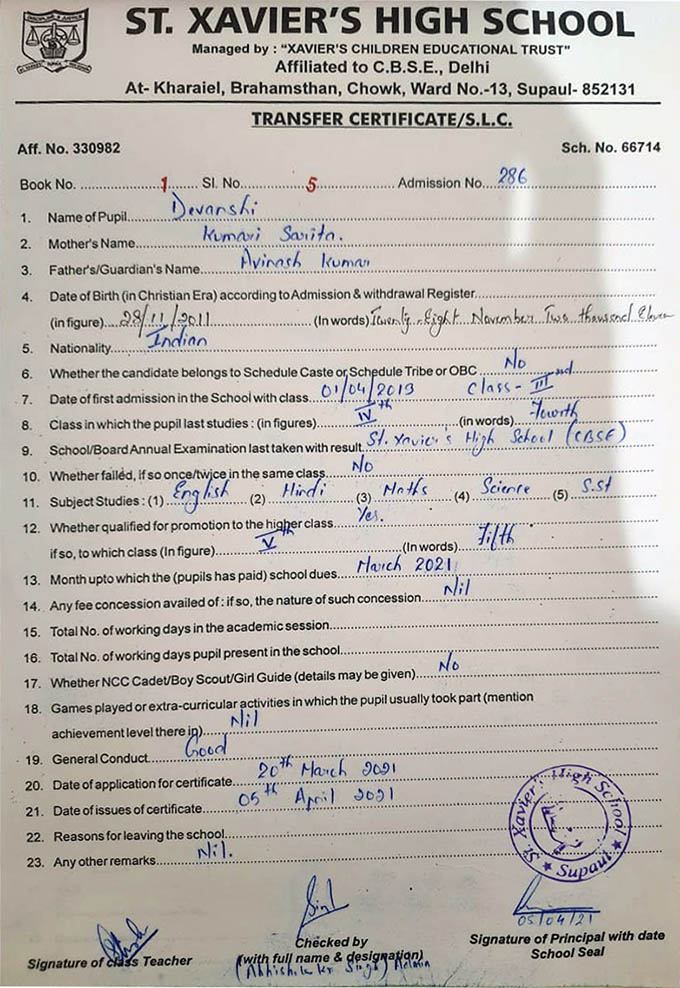 ST. XAVIER'S HIGH SCHOOL
Managed by : "XAVIER'S CHILDREN EDUCATIONAL TRUST"
Affiliated to C.B.S.E., Delhi
At- Kharaiel, Brahamsthan, Chowk, Ward No.-13, Supaul- 852131
TRANSFER CERTIFICATE/S.L.C.
Aff. No. 330982 Sch. No. 66714
Book No. 1 Sl. No. 5 Admission No. 286
1. Name of Pupil Devanshi
2. Mother's Name Kumari Sarita.
3. Father's/Guardian's Name Avinash Kumar
4. Date of Birth (in Christian Era) according to Admission & withdrawal Register
(in figure) 28/11/2011 (In words) Twenty-Eight November Two thousand Eleven
5. Nationality Indian
6. Whether the candidate belongs to Schedule Caste or Schedule Tribe or OBC No
7. Date of first admission in the School with class 01/04/2019 Class- III nd
8. Class in which the pupil last studies : (in figures) IV th (in words) Fourth
9. School/Board Annual Examination last taken with result St. Xavier's High School (CBSE)
10. Whether failed, if so once/twice in the same class No
11. Subject Studies : (1) English (2) Hindi (3) Maths (4) Science (5) S.St
12. Whether qualified for promotion to the higher class Yes.
if so, to which class (In figure) V th (In words) Fifth
13. Month upto which the (pupils has paid) school dues March 2021
14. Any fee concession availed of : if so, the nature of such concession Nil
15. Total No. of working days in the academic session
16. Total No. of working days pupil present in the school
17. Whether NCC Cadet/Boy Scout/Girl Guide (details may be given) No
18. Games played or extra-curricular activities in which the pupil usually took part (mention
achievement level there in) Nil
19. General Conduct Good
20. Date of application for certificate 20th March 2021
21. Date of issues of certificate 05th April 2021
22. Reasons for leaving the school
23. Any other remarks Nil.
St. Xavier's High School
★ Supaul ★
05/04/21
Signature of class Teacher
Checked by
(with full name & designation)
(Abhishek Kr Singh) Admin
Signature of Principal with date
School Seal